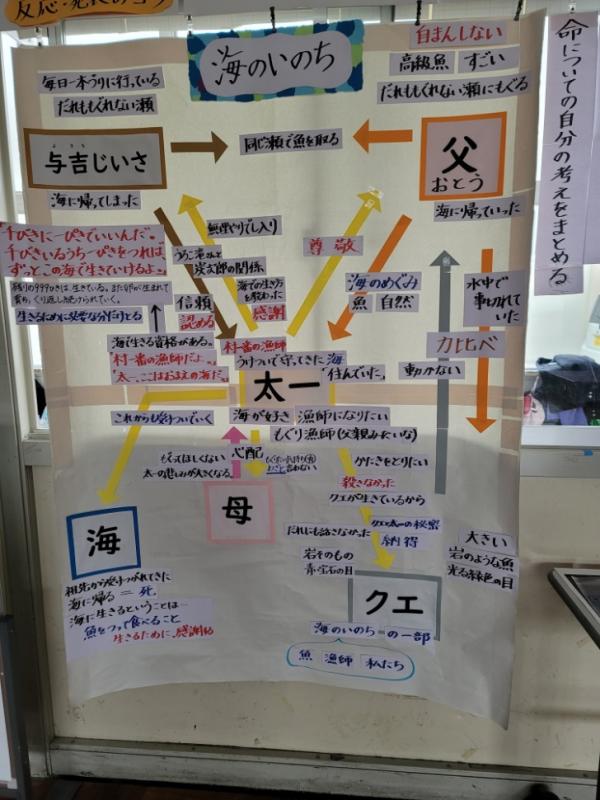 海のいのち
命についての自分の考えをまとめる
毎日一本づりに行っている
だれももぐれない瀬
与吉じいさ
よきち
海に帰ってしまった
同じ瀬で魚を取る
自まんしない
高級魚 すごい
だれももぐれない瀬にもぐる
父
おとう
海に帰っていった
千びきに一ぴきでいいんだ。
千びきいるうち一ぴきをつれば、
ずっとこの海で生きていけるよ。
生きるために必要な分だけとる
無理やりでし入り
海での生き方
を教わった
感謝
信頼
認める
海で生きる資格がある。
村一番の漁師だよ。
太一、ここはおまえの海だ。
尊敬
海のめぐみ
魚 自然
水中で
事切れて
いた
力比べ
動かない
村一番の漁師
うけついで守ってきた海
住んでいた。
太一
海が好き 漁師になりたい
もぐり漁師(父親みたいな)
これからも受けついでいく
もぐってほしくない
太一の悲しみが大きくなる
心配
母
かたきをとりたい
殺さなかった
クエが生きているから
だれにも話さなかった
クエと太一の秘密
納得
岩そのもの
青い宝石の目
大きい
岩のような魚
光る緑色の目
クエ
海のいのち の一部
魚 漁師 私たち
海
祖先から受けつがれてきた
海に帰る = 死。
海に生きるということは…
魚をつって食べること
生きるために、感謝する